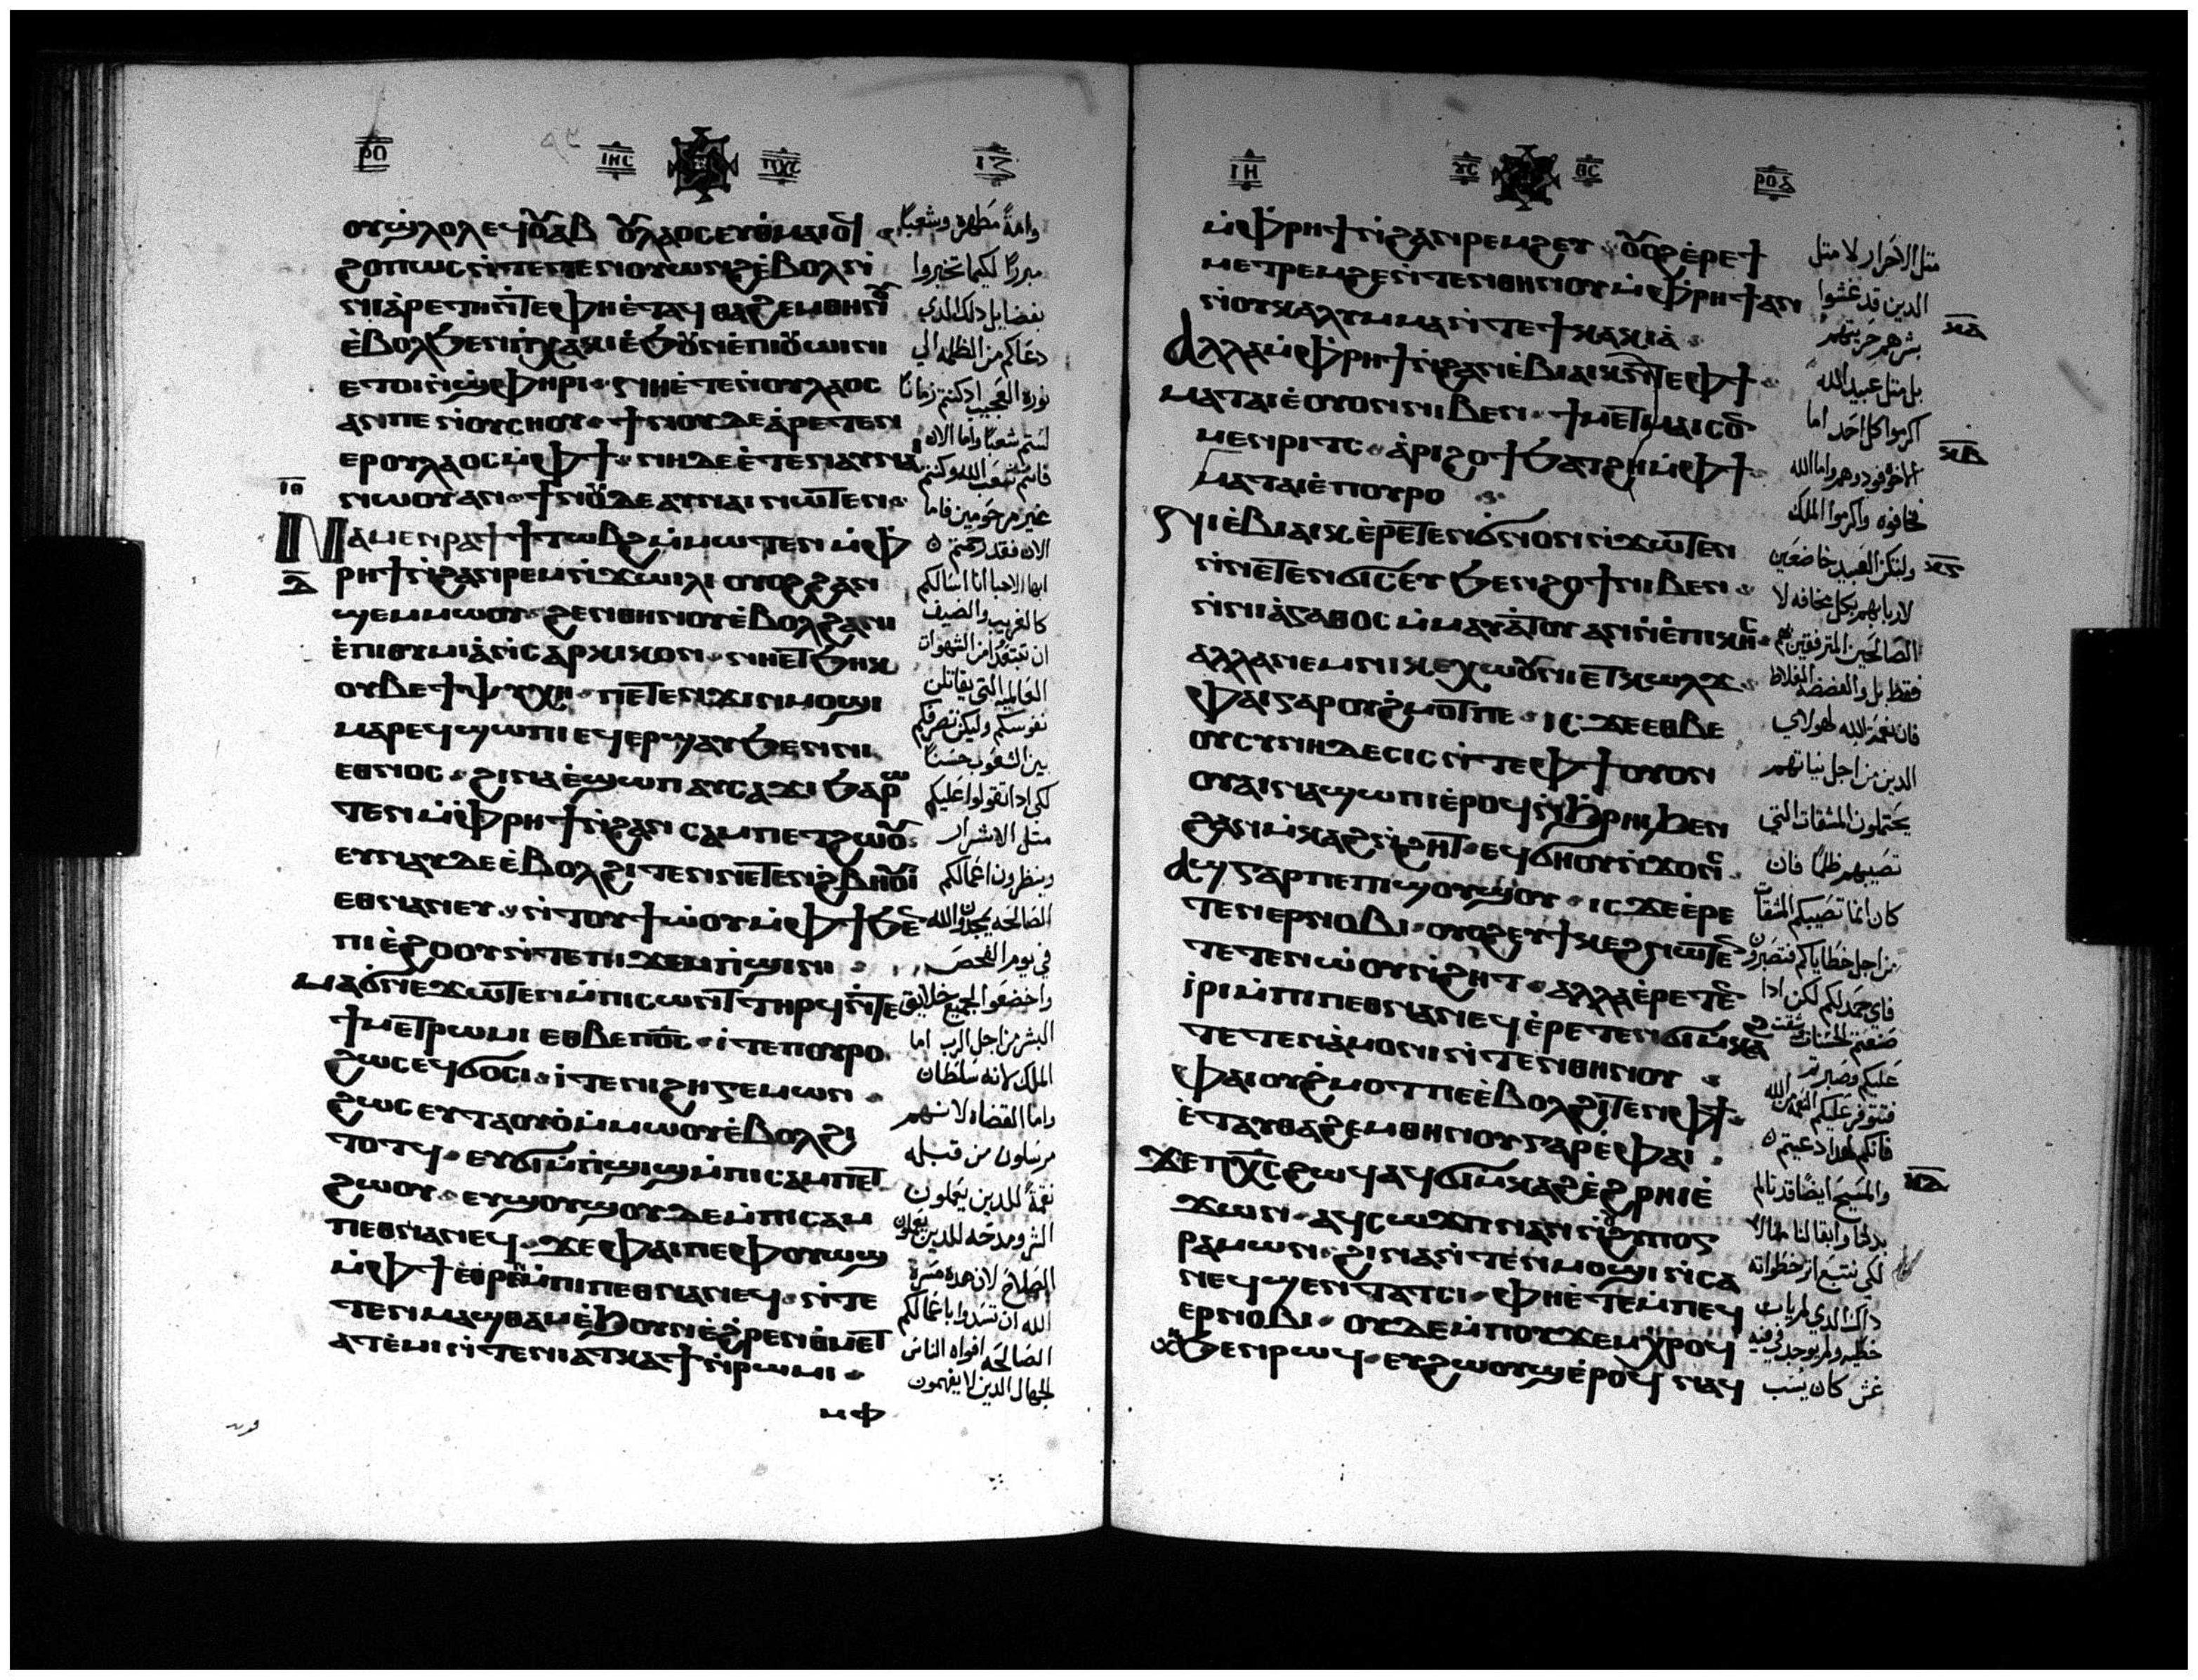 ⲣⲟ ⲓⲏⲥ ⲡⲭⲥ ⲓⲍ
ⲟⲩϣⲗⲟⲗ ⲉϥⲟⲩⲁⲃ ⲟⲩⲗⲁⲟⲥ ⲉⲩⲑⲙⲁⲓⲟϥ
ϩⲟⲡⲱⲥ ⲛⲧⲉⲧⲉⲛⲟⲩⲱⲛϩ ⲉⲃⲟⲗ ⲛ
ⲛⲓⲁⲣⲉⲧⲏ ⲛⲧⲉ ⲫⲏ ⲉⲧⲁϥⲑⲁϩⲉⲙ ⲑⲏⲛⲟⲩ
ⲉⲃⲟⲗ ϧⲉⲛ ⲡⲭⲁⲕⲓ ⲉϧⲟⲩⲛ ⲉⲡⲓⲟⲩⲱⲓⲛⲓ
ⲉⲧⲟⲓ ⲛϣⲫⲏⲣⲓ ⲛⲏ ⲉⲧⲉ ⲛⲟⲩⲗⲁⲟⲥ
ⲁⲛ ⲡⲉ ⲛⲟⲩⲥⲏⲟⲩ ϯⲛⲟⲩ ⲇⲉ ⲁⲣⲉⲧⲉⲛ
ⲉⲣⲟⲩⲗⲁⲟⲥ ⲙⲫϯ ⲛⲏ ⲇⲉ ⲉⲧⲉ ⲛⲁⲩⲛⲁⲓ
ⲛⲱⲟⲩ ⲁⲛ ϯⲛⲟⲩ ⲇⲉ ⲁⲩⲛⲁⲓ ⲛⲱⲧⲉⲛ
ⲓⲑ
ⲛⲁⲙⲉⲛⲣⲁϯ ϯⲧⲱⲃϩ ⲙⲙⲱⲧⲉⲛ ⲙⲫ
ⲣⲏϯ ⲛϩⲁⲛⲣⲉⲙⲛϫⲱⲓⲗⲓ ⲟⲩⲟϩ ϩⲁⲛ
ϣⲉⲙⲙⲱⲟⲩ ϩⲉⲛⲑⲏⲛⲟⲩ ⲉⲃⲟⲗ ϩⲁ ⲛⲓ
ⲉⲡⲓⲑⲩⲙⲓⲁ ⲛⲥⲁⲣⲕⲓⲕⲟⲛ ⲛⲏ ⲉⲧϧⲏⲕ
ⲟⲩⲃⲉ ϯⲯⲩⲭⲏ ⲡⲉⲧⲉⲛϫⲓⲛⲙⲟϣⲓ
ⲙⲁⲣⲉϥϣⲱⲡⲓ ⲉϥⲉⲣϣⲁⲩ ϧⲉⲛ ⲛⲓ
ⲉⲑⲛⲟⲥ ϩⲓⲛⲁ ⲉϣⲱⲡ ⲁⲩⲥⲁϫⲓ ϧⲁⲣⲱ
ⲧⲉⲛ ⲙⲫⲣⲏϯ ⲛϩⲁⲛⲥⲁⲙⲡⲉⲧϩⲱⲟⲩ
ⲉⲩⲛⲁⲩ ⲇⲉ ⲉⲃⲟⲗϩⲓⲧⲉⲛ ⲛⲉⲧⲉⲛϩⲃⲏⲟⲩⲓ
ⲉⲑⲛⲁⲛⲉⲩ ⲛⲧⲟⲩϯⲱⲟⲩ ⲙⲫϯ ϧⲉⲛ
ⲡⲓⲉϩⲟⲟⲩ ⲛⲧⲉ ⲡⲓϫⲉⲙⲡϣⲓⲛⲓ
ⲙⲁϭⲛⲉϫⲱⲧⲉⲛ ⲙⲡⲓⲥⲱⲛⲧ ⲧⲏⲣϥ ⲛⲧⲉ
ϯⲙⲉⲧⲣⲱⲙⲓ ⲉⲑⲃⲉ ⲡϭⲥ ⲓⲧⲉ ⲡⲟⲩⲣⲟ
ϩⲱⲥ ⲉϥϭⲟⲥⲓ ⲓⲧⲉ ⲛⲓϩⲏⲅⲉⲙⲱⲛ
ϩⲱⲥ ⲉⲩⲧⲁⲟⲩⲟ ⲙⲙⲱⲟⲩ ⲉⲃⲟⲗϩⲓ
ⲧⲟⲧϥ ⲉⲩϭⲓⲙⲡϣⲓϣ ⲙⲡⲓⲥⲁⲙⲡⲉⲧ
ϩⲱⲟⲩ ⲉⲩϣⲟⲩϣⲟⲩ ⲇⲉ ⲙⲡⲓⲥⲁⲙ
ⲡⲉⲑⲛⲁⲛⲉϥ ϫⲉ ⲫⲁⲓ ⲡⲉ ⲫⲟⲩⲱϣ
ⲙⲫϯ ⲉⲑⲣⲉⲛ ⲙⲡⲓⲡⲉⲑⲛⲁⲛⲉϥ ⲛⲧⲉ
ⲧⲉⲛⲙⲁϣⲑⲁⲙ ⲉϧⲟⲩⲛ ⲉϩⲣⲉⲛ ⲑⲙⲉⲧ
ⲁⲧⲉⲙⲓ ⲛⲧⲉ ⲛⲓⲁⲧⲕⲁϯ ⲛⲣⲱⲙⲓ
ⲙⲫ
وامة مطهره وشعبًا
مبررًا لكيما تخبروا
بفضايل ذلك الذي
دعاكم من الظلمه الي
نوره العجيب اذ كنتم زمانًا
لستم شعبًا واما الان
فانتم شعب الله وكنتم
غير مرحومين فاما
الان فقد رحمتم
ايها الاحبا انا اسالكم
كالغريب والضيف
ان تبتعدوا من الشهوات
العالميه التي يقاتلن
نفوسكم وليكن تصرفكم
بين الشعوب حسنًا
لكي اذا تقولوا عليكم
مثل الاشرار
وينظرون اعمالكم
الصالحه يمجدون الله
في يوم الفحص
واخضعوا لجميع خلايق
البشر من اجل الرب اما
الملك لانه سلطان
واما القضاه لانهم
مرسلون من قبله
نقمة للذين يعملون
الشر ومدحه للذين يعملون
الصلاح لان هذه مسرة
الله ان تسدوا باعمالكم
الصالحه افواه الناس
الجهال الذين لا يفهمون
ⲓⲏ ⲩⲥ ⲑⲥ ⲣⲟⲁ
ⲙⲫⲣⲏϯ ⲛϩⲁⲛⲣⲉⲙϩⲉⲩ ⲟⲩⲟϩ ⲉⲣⲉ ϯ
ⲙⲉⲧⲣⲉⲙϩⲉ ⲛⲧⲉⲛ ⲑⲏⲛⲟⲩ ⲙⲫⲣⲏϯ ⲁⲛ
ⲛⲟⲩⲕⲁⲗⲩⲙⲙⲁ ⲛⲧⲉ ϯⲕⲁⲕⲓⲁ
ⲁⲗⲗⲁ ⲙⲫⲣⲏϯ ⲛϩⲁⲛⲉⲃⲓⲁⲓⲕ ⲛⲧⲉ ⲫϯ
ⲙⲁⲧⲁⲓⲉ ⲟⲩⲟⲛ ⲛⲓⲃⲉⲛ ϯⲙⲉⲧⲙⲁⲓⲥⲟⲛ
ⲙⲉⲛⲣⲓⲧⲥ ⲁⲣⲓϩⲟϯ ϧⲁⲧϩⲏ ⲙⲫϯ
ⲙⲁⲧⲁⲓⲉ ⲡⲟⲩⲣⲟ
ⲛⲓⲉⲃⲓⲁⲓⲕ ⲉⲣⲉⲧⲉⲛϭⲛⲟⲛ ⲛϫⲱⲧⲉⲛ
ⲛⲛⲉⲧⲉⲛϭⲓⲥⲉⲩ ϧⲉⲛ ϩⲟϯ ⲛⲓⲃⲉⲛ
ⲛⲛⲓⲁⲅⲁⲑⲟⲥ ⲙⲙⲁⲩⲁⲧⲟⲩ ⲁⲛ ⲛⲉⲡⲓⲕⲏⲥ
ⲁⲗⲗⲁ ⲛⲉⲙ ⲛⲓⲕⲉⲭⲱⲟⲩⲛⲓ ⲉⲧⲕⲱⲗϫ
ⲫⲁⲓ ⲅⲁⲣ ⲟⲩϩⲙⲟⲧ ⲡⲉ ⲓⲥϫⲉ ⲉⲑⲃⲉ
ⲟⲩⲥⲩⲛⲏⲇⲉⲥⲓⲥ ⲛⲧⲉ ⲫϯ ⲟⲩⲟⲛ
ⲟⲩⲁⲓ ⲛⲁϣⲱⲡⲓ ⲉⲣⲟϥ ⲛϧⲣⲏⲓ ϧⲉⲛ
ϩⲁⲛⲙⲕⲁϩ ⲛϩⲏⲧ ⲉϥϭⲏⲟⲩ ⲛϫⲟⲛⲥ
ⲁϣ ⲅⲁⲣ ⲡⲉ ⲡⲓϣⲟⲩϣⲟⲩ ⲓⲥϫⲉ ⲉⲣⲉ
ⲧⲉⲛⲉⲣⲛⲟⲃⲓ ⲟⲩⲟϩ ⲉⲩϯⲕⲉϩ ⲛⲱⲧⲉⲛ
ⲧⲉⲧⲉⲛⲱⲟⲩⲛϩⲏⲧ ⲁⲗⲗⲁ ⲉⲣⲉⲧⲉⲛ
ⲓⲣⲓ ⲙⲡⲓⲡⲉⲑⲛⲁⲛⲉϥ ⲉⲣⲉⲧⲉⲛϭⲓⲙⲕⲁϩ
ⲧⲉⲧⲉⲛⲁⲙⲟⲛⲓ ⲛⲧⲉⲛ ⲑⲏⲛⲟⲩ
ⲫⲁⲓ ⲟⲩϩⲙⲟⲧ ⲡⲉ ⲉⲃⲟⲗϩⲓⲧⲉⲛ ⲫϯ
ⲉⲧⲁⲩⲑⲁϩⲉⲙ ⲑⲏⲛⲟⲩ ⲅⲁⲣ ⲉⲫⲁⲓ
ϫⲉ ⲡⲭⲥ ϩⲱϥ ⲁϥϭⲓⲙⲕⲁϩ ⲉϩⲣⲏⲓ ⲉ
ϫⲱⲛ ⲁϥⲥⲱϫⲡ ⲛⲁⲛ ⲛⲟⲩϩⲩⲡⲟⲅ
ⲣⲁⲙⲱⲛ ϩⲓⲛⲁ ⲛⲧⲉⲛⲙⲟϣⲓ ⲛⲥⲁ
ⲛⲉϥϣⲉⲛⲧⲁⲧⲥⲓ ⲫⲏ ⲉⲧⲉ ⲙⲡⲉϥ
ⲉⲣⲛⲟⲃⲓ ⲟⲩⲇⲉ ⲙⲡⲟⲩϫⲉⲙ ⲭⲣⲟϥ
ϧⲉⲛ ⲣⲱϥ ⲉⲩϩⲱⲟⲩϣ ⲉⲣⲟϥ ⲛⲁϥ
مثل الاحرار لا مثل
الذين قد غشوا
بشرهم حريتهم
بل مثل عبيد الله
اكرموا كل احد اما
الاخوه فودوهم واما الله
فخافوه واكرموا الملك
ولتكن العبيد خاضعين
لاربابهم بكل مخافه لا
الصالحين المترفقين
فقط بل والفضضه الغلاظ
فان نعمة الله لهولاي
الذين من اجل نياتهم
يحتملون المشقات التي
تصيبهم ظلمًا فان
كان انما تصيبكم المشقات
من اجل خطاياكم فتصبرون
فاي حمد لكم لكن اذا
صنعتم الحسنات
عليكم وصبرتم
فتتوفر عليكم النعمه من الله
فانكم لهذا دعيتم
والمسيح ايضًا قد نالم
بدلنا وابقا لنا مثالا
لكي نتبع اثر خطواته
ذاك الذي لم يات
خطيه ولم يوجد في فيه
غش كان يسب
ⲕⲁ
ⲕⲃ
ⲕⲅ
ⲕⲇ